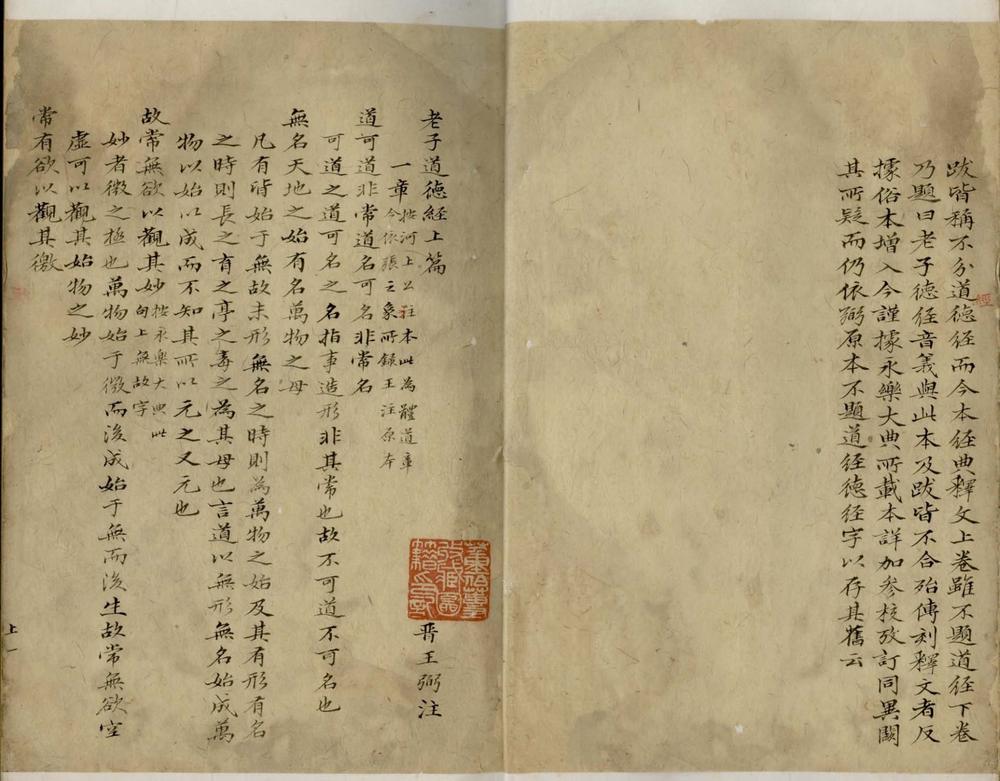 跋皆稱不分道德經而今本經典釋文上卷雖不題道經下卷
乃題曰老子德經音義與此本及跋皆不合殆傳刻釋文者反
據俗本增入今謹據永樂大典所載本詳加參核攷訂同異闕
其所疑而仍依弼原本不題道經德經字以存其舊云
經
老子道德經上篇
晉王弼注
一章
按河上公注本此為體道章
今依張之象所錄王注原本
道可道非常道名可名非常名
可道之道可名之名指事造形非其常也故不可道不可名也
無名天地之始有名萬物之母
凡有皆始于無故未形無名之時則為萬物之始及其有形有名
之時則長之育之亭之毒之為其母也言道以無形無名始成萬
物以始以成而不知其所以元之又元也
故常無欲以觀其妙
按永樂大典此
句上無故字
妙者微之極也萬物始于微而後成始于無而後生故常無欲空
虛可以觀其始物之妙
常有欲以觀其徼
上一